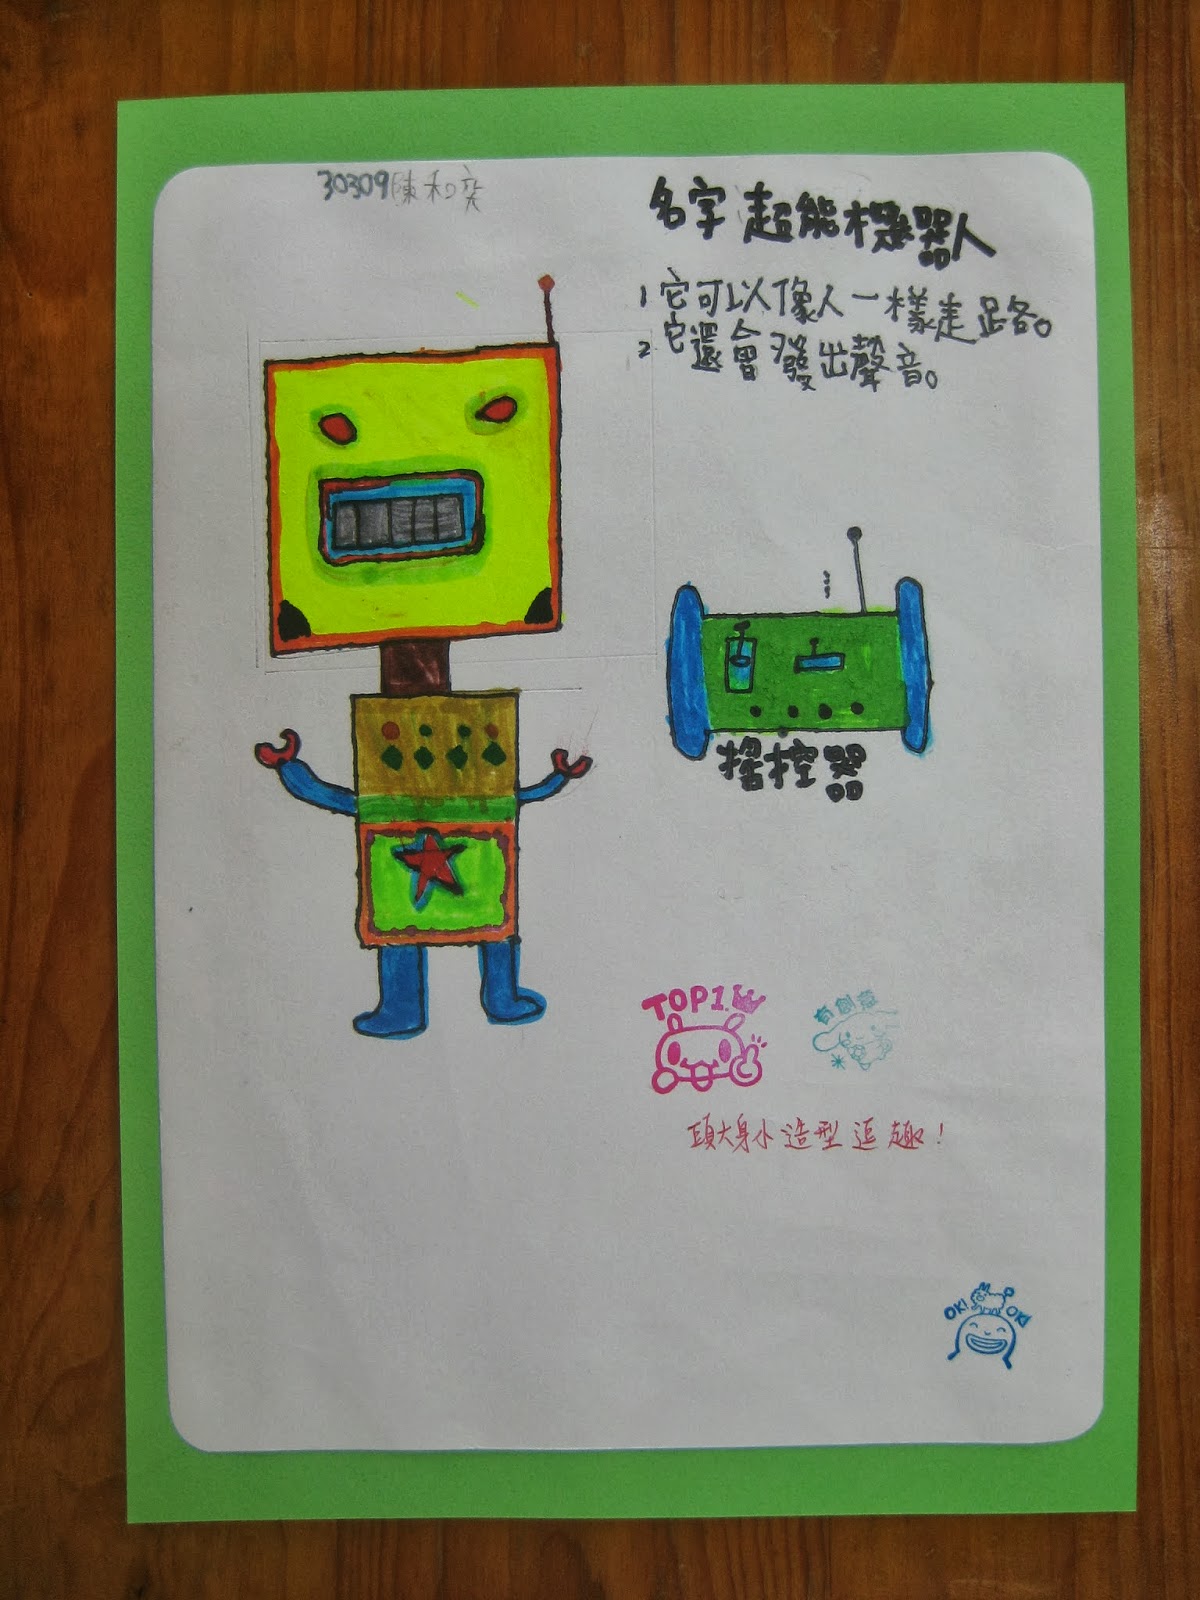 30309陳和奕
名字 超能機器人
1.它可以像人一樣走路。
2.它還會發出聲音。
搖控器
TOP1
有創意
頭大身小造型逗趣!
OK! OK!